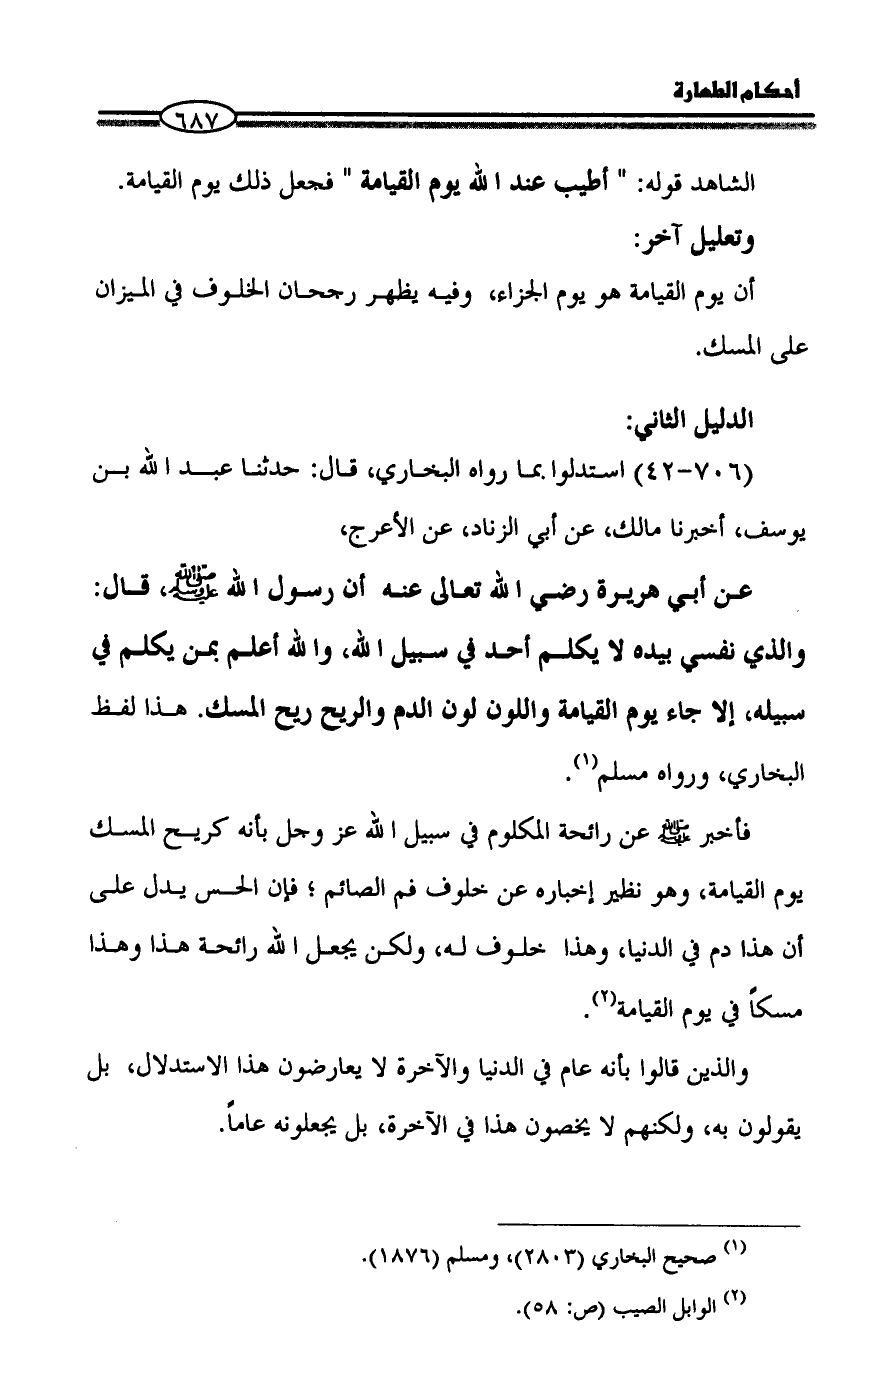 أحكام الطهارة
٦٨٧
الشاهد قوله: " أطيب عند الله يوم القيامة " فجعل ذلك يوم القيامة.
وتعليل آخر:
أن يوم القيامة هو يوم الجزاء، وفيه يظهر رجحان الخلوف في الميزان
على المسك.
الدليل الثاني:
(٧٠٦-٤٢) استدلوا بما رواه البخاري، قال: حدثنا عبد الله بن
يوسف، أخبرنا مالك، عن أبي الزناد، عن الأعرج،
عن أبي هريرة رضي الله تعالى عنه أن رسول الله ﷺ، قال:
والذي نفسي بيده لا يكلم أحد في سبيل الله، والله أعلم بمن يكلم في
سبيله، إلا جاء يوم القيامة واللون لون الدم والريح ريح المسك. هذا لفظ
البخاري، ورواه مسلم(١).
فأخبر ﷺ عن رائحة المكلوم في سبيل الله عز وجل بأنه كريح المسك
يوم القيامة، وهو نظير إخباره عن خلوف فم الصائم ؛ فإن الحس يدل على
أن هذا دم في الدنيا، وهذا خلوف له، ولكن يجعل الله رائحة هذا وهذا
مسكاً في يوم القيامة(٢).
والذين قالوا بأنه عام في الدنيا والآخرة لا يعارضون هذا الاستدلال، بل
يقولون به، ولكنهم لا يخصون هذا في الآخرة، بل يجعلونه عاماً.
(١) صحيح البخاري (٢٨٠٣)، ومسلم (١٨٧٦).
(٢) الوابل الصيب (ص: ٥٨).